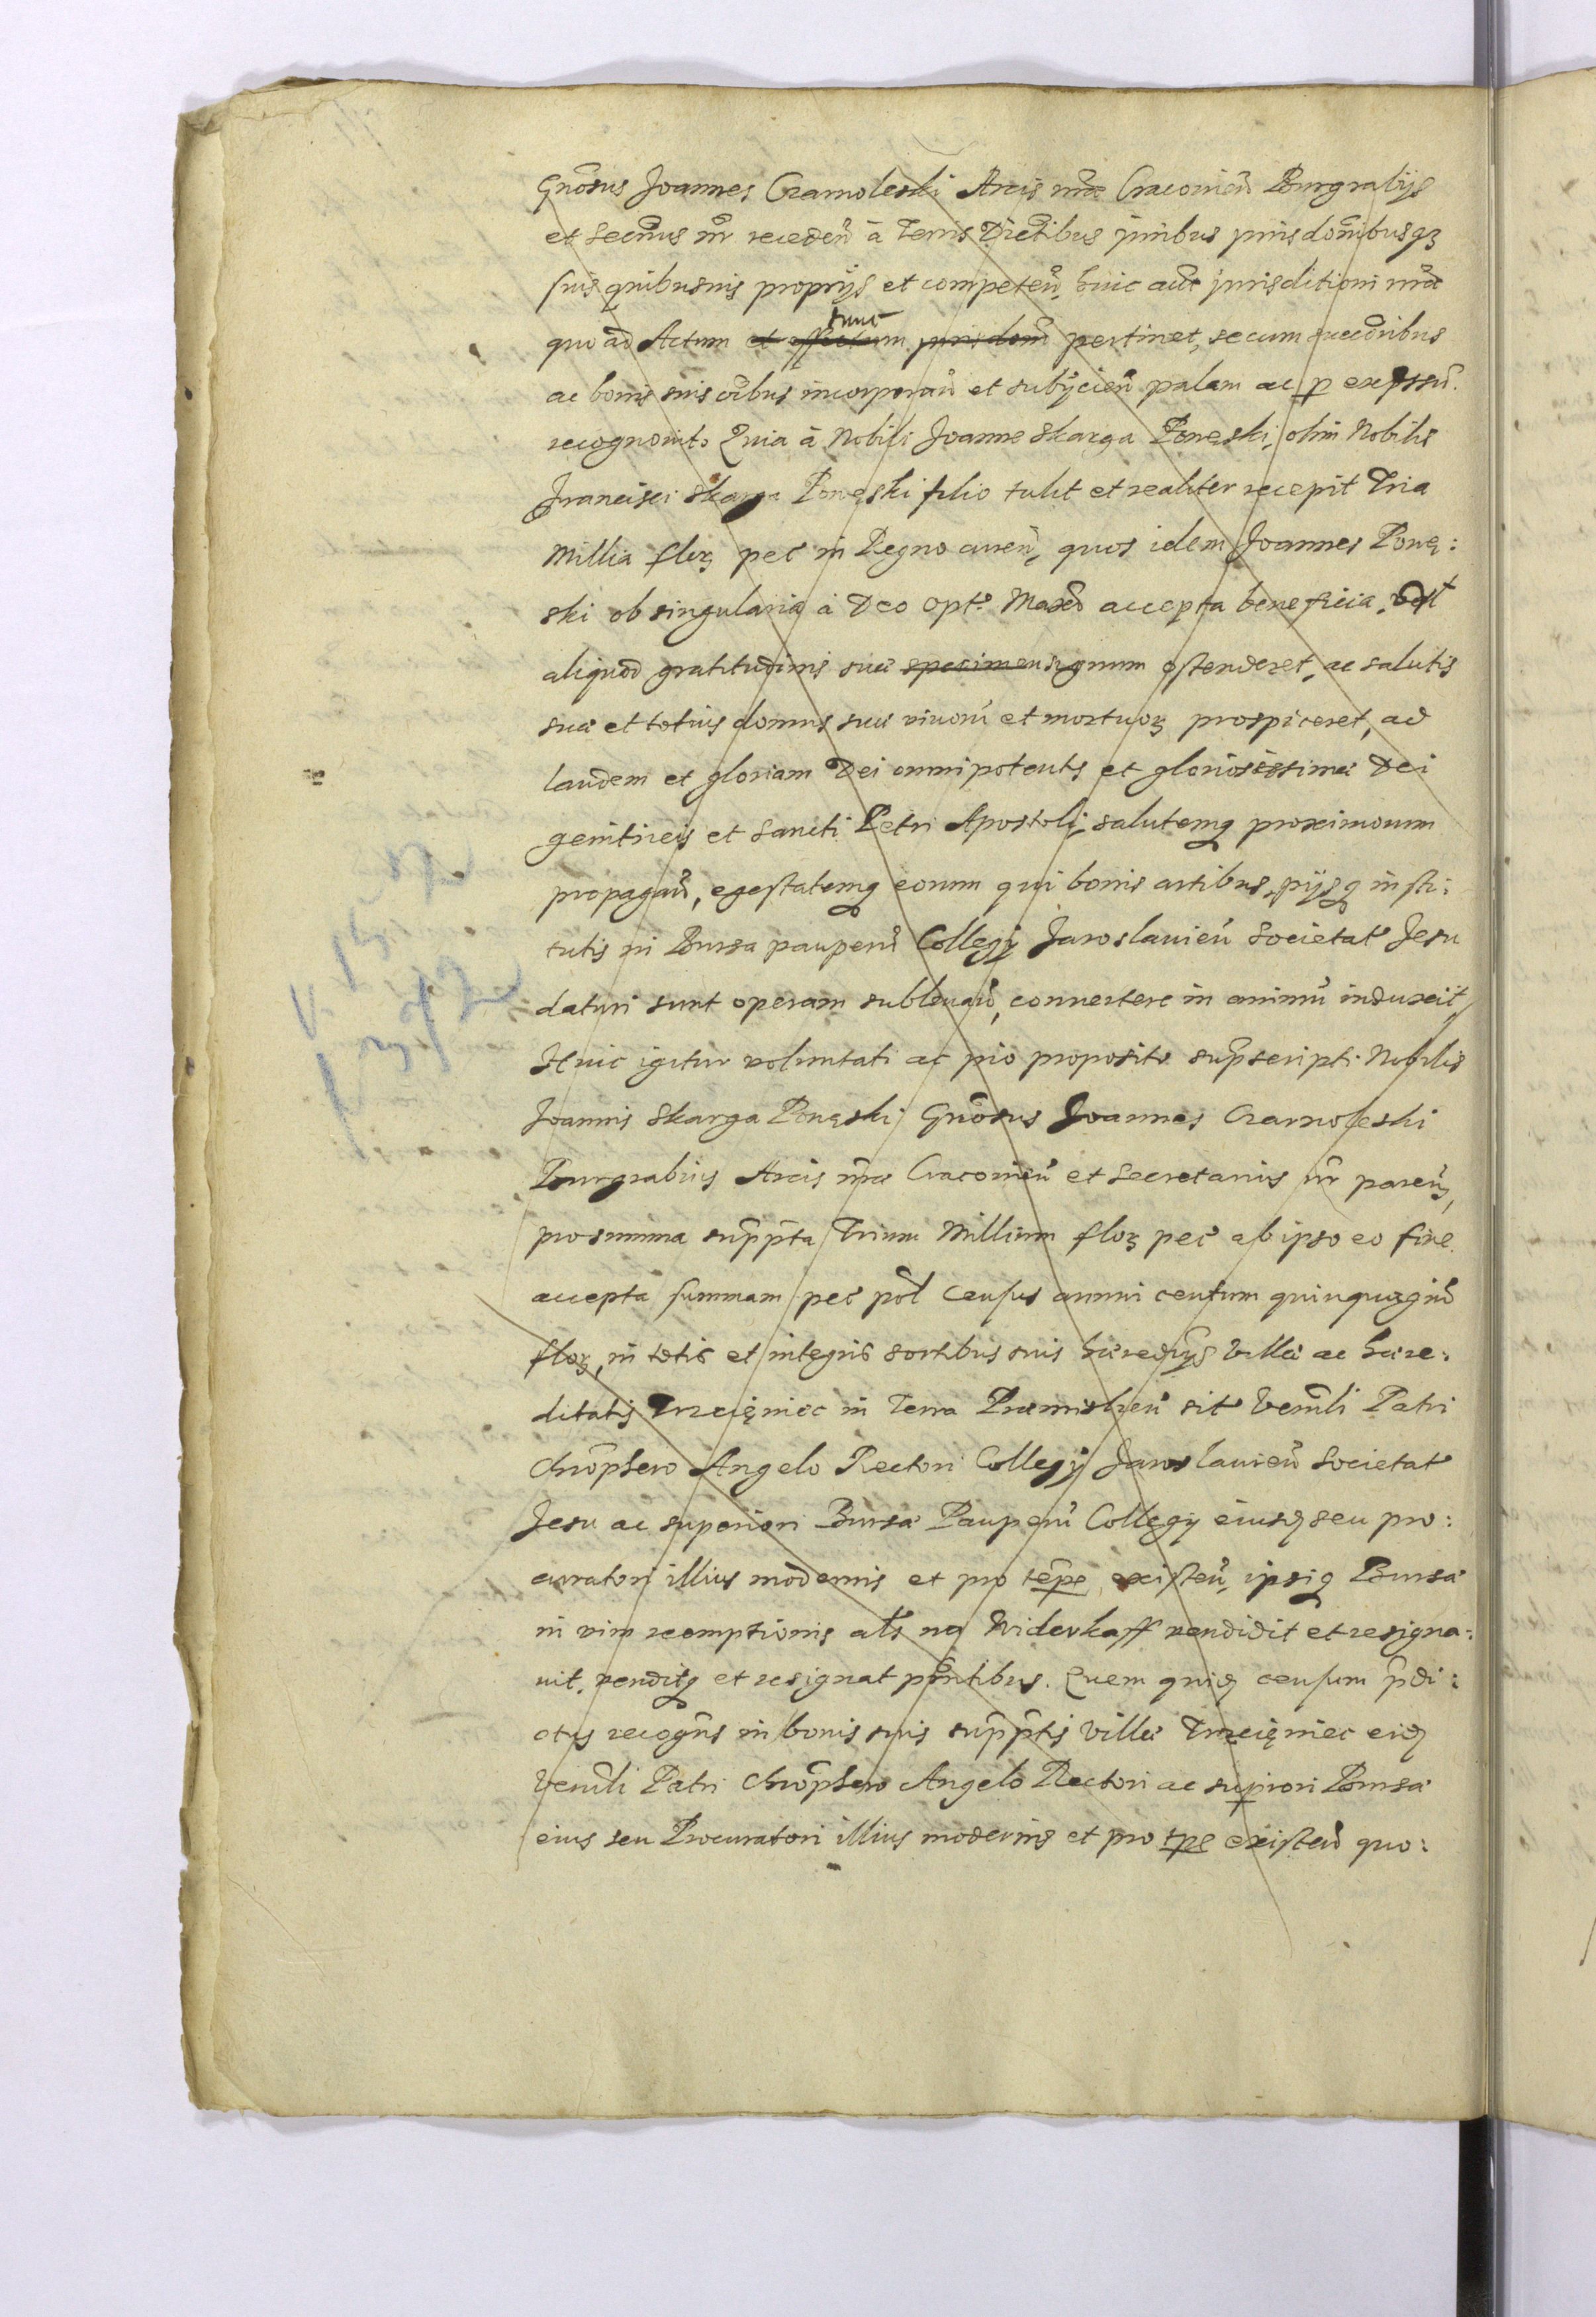 Gnosus Joannes Czarnoleski Arcis nrae Cracovien Burgrabijs
et Secrius nr receden à Terris Districtibus juribus jurisdonibusqz
suis quibusuis proprijs et competen, huic aut jurisditioni nrae
quo ad Actum et effectum jurisdom tunc pertinet, se cum succoribus
ac bonis suis oibus incorporan et subijcien palam ac p expssu.
recognouit. Quia à Nobili Joanne Skarga Powęski, olim Nobilis
Francisci Skarga Powęski filio tulit et realiter recepit Tria
Millia florz pec in Regno curren, quos idem Joannes Powę:
ski ob singularia à Deo opt. Maxo accepta beneficia, vt
aliquod gratitudinis suae specimen signum ostenderet, ac salutis
suae et totius domus suae viuoru et mortuorz prospiceret, ad
laudem et gloriam Dei omnipotentis et gloriosissimae Dei
genitricis et Sancti Petri Apostoli, salutemq proximorum
propagan, egestatemq eorum qui bonis artibus, pijsq insti:
tutis in Bursa pauperu Collegij Jaroslauien Societat Jesu
daturi sunt operam subleuan, conuertere in animu induxit,
Huic igitur voluntati ac pio proposito supscripti Nobilis
Joannis Skarga Powęski Gnosus Joannes Czarnoleski
Burgrabius Arcis nrae Cracouien et Secretarius nr paren,
pro summa suppta Trium Millium florz pec ab ipso eo fine
accepta summam pec pol Census annui centum quinquagin
florz, in totis et integris sortibus suis haeredijs Villae ac haere:
ditatis Trzcięniec in Terra Praemislien sit Venrli Patri
Chrophero Angelo Rectori Collegij Jaroslauien Societat
Jesu ac superiori Bursae Pauperu Collegij eiusq seu pro:
curatori illius modernis et pro tepe existen, ipsiq Bursae
in vim reemptionis als na Widerkaff vendidit et resigna:
uit, venditq et resignat pntibus. Quem quiq censum pdi:
ctus recogns in bonis suis supptis Villae Trzcięniec eiq
Venrli Patri Chrophero Angelo Rectori ac supiori Bursae
eius seu Procuratori illius modernis et pro tpe existen quo: